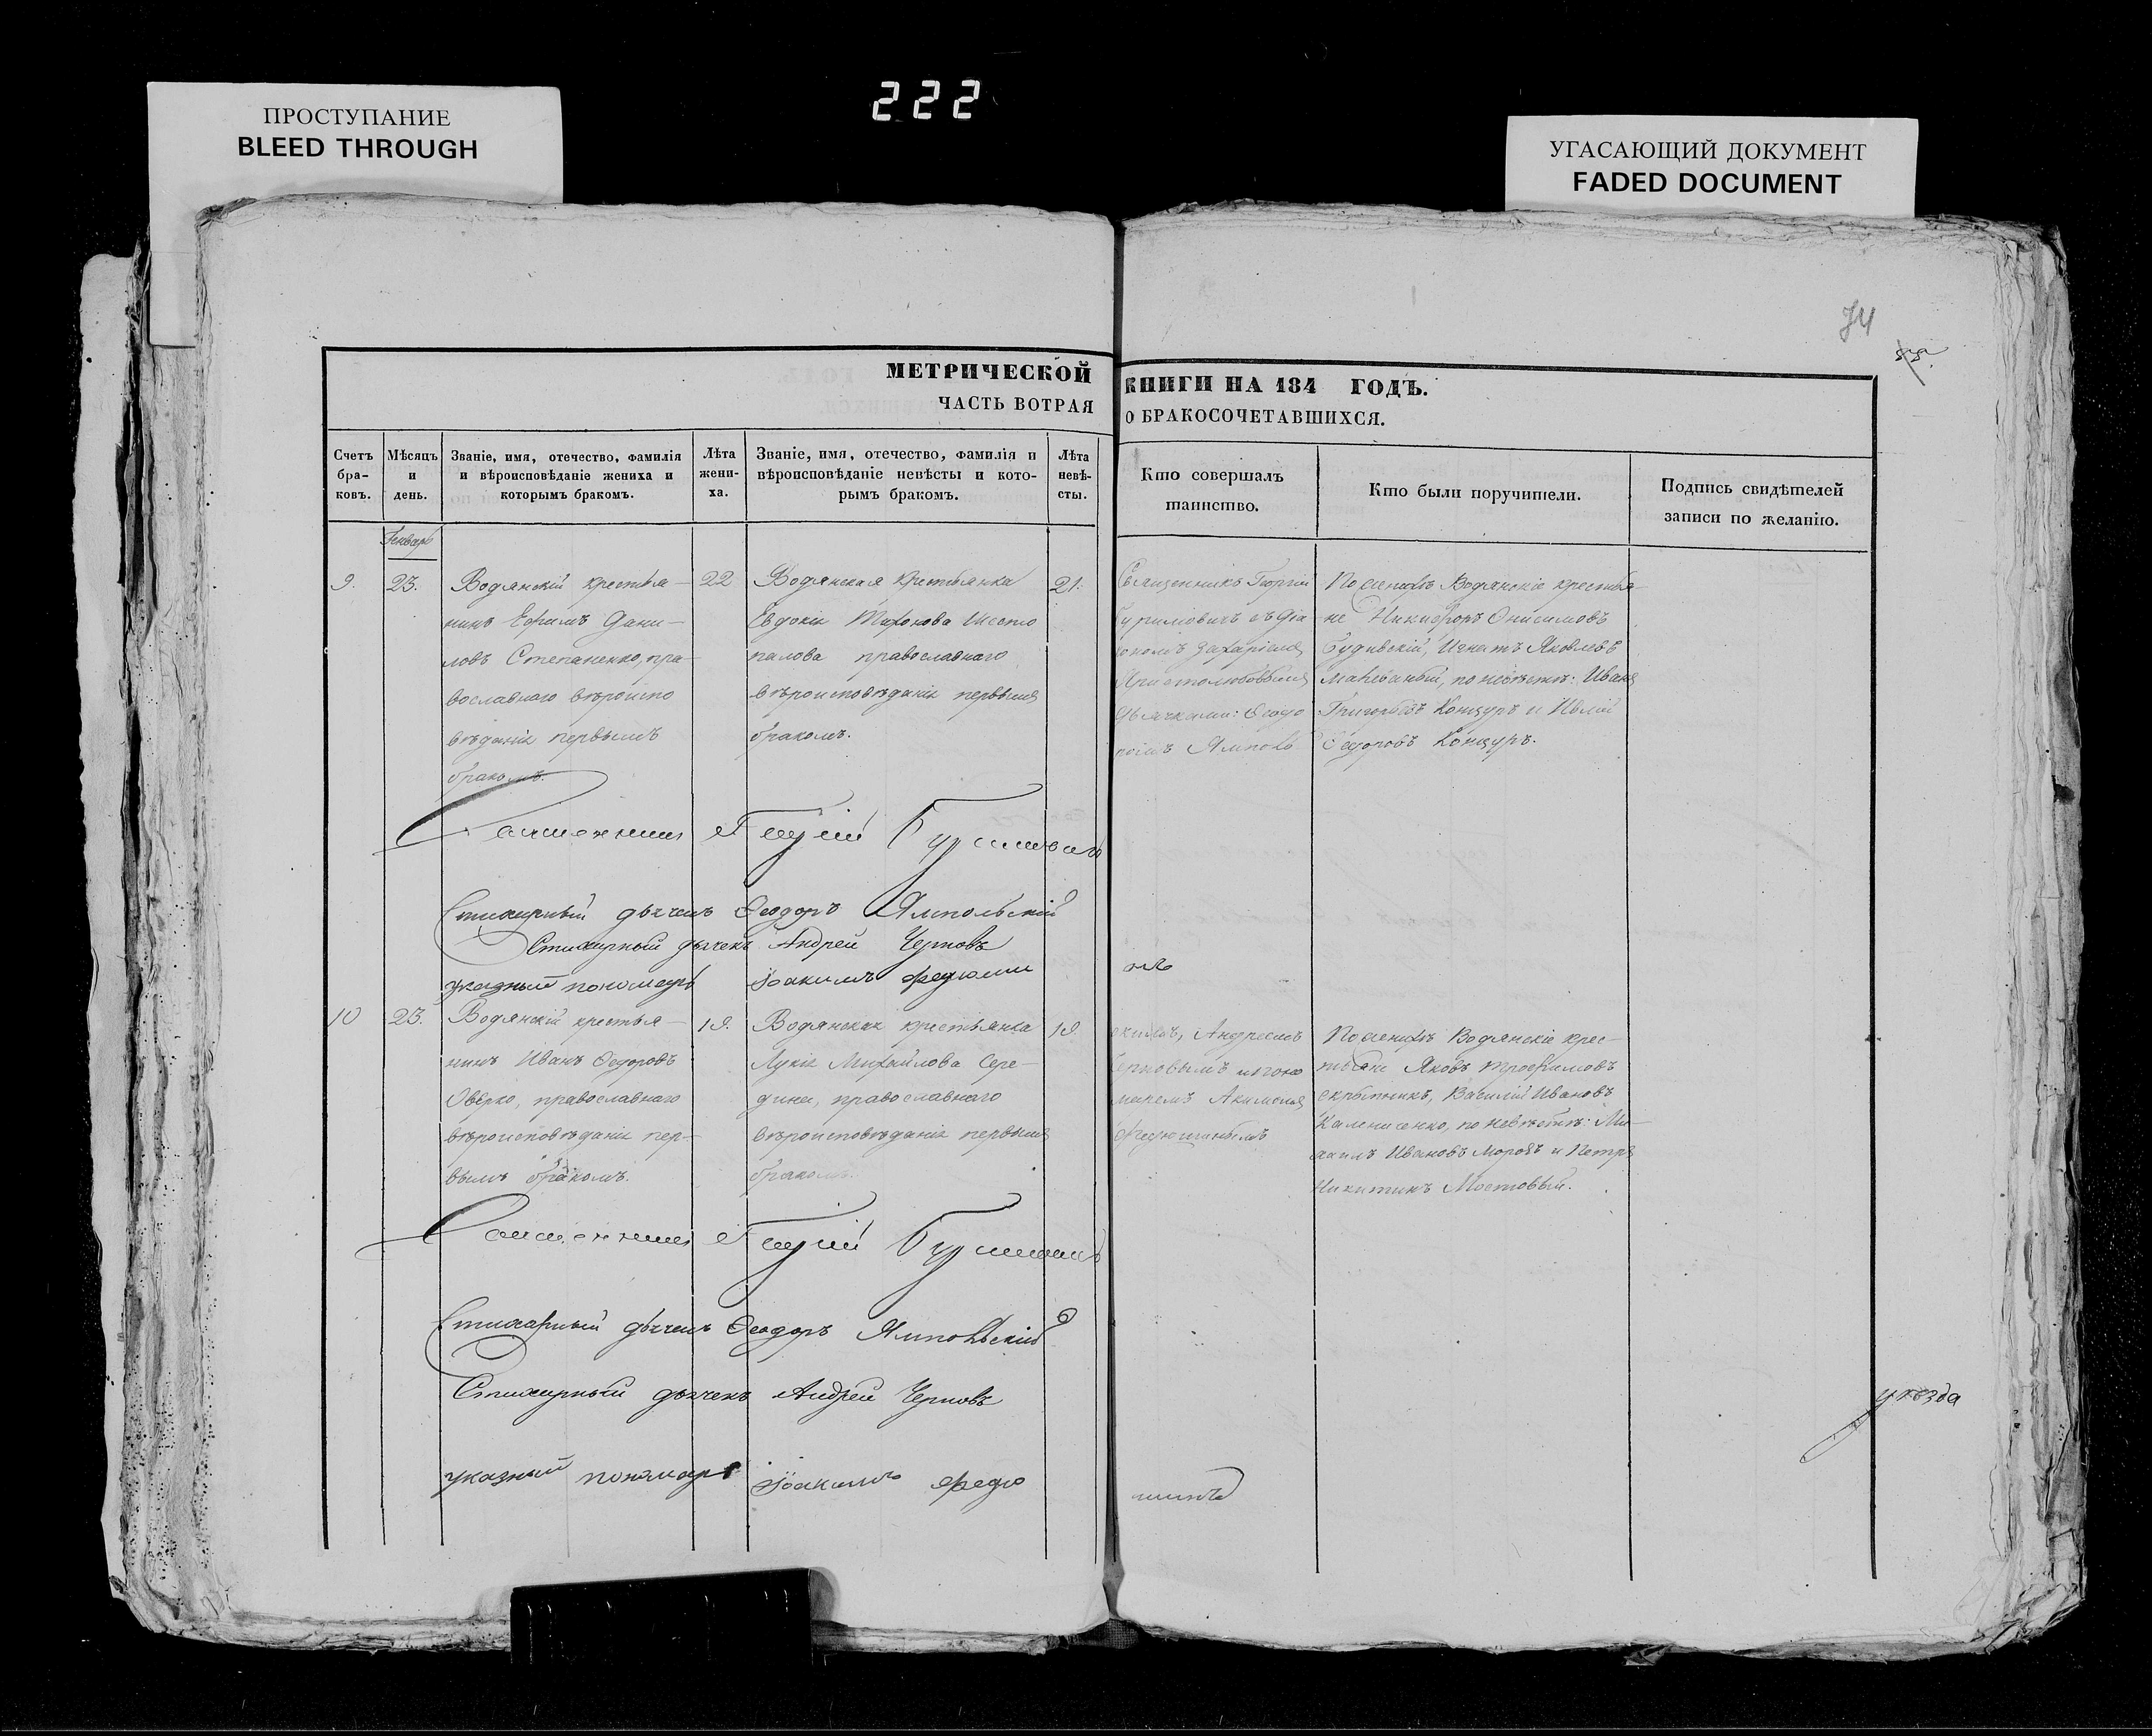 222
ПРОСТУПАНИЕ
BLEED THROUGH
УГАСАЮЩИЙ ДОКУМЕНТ
FADED DOCUMENT
74
МЕТРИЧЕСКОЙ
ЧАСТЬ ВОТРАЯ
КНИГИ НА 184 ГОДЪ.
О БРАКОСОЧЕТАВШИХСЯ.
Счетъ
бра-
ковъ.
Мѣсяцъ
и
день.
Званіе, имя, отечество, фамилія
и вѣроисповѣданіе жениха и
которымъ бракомъ.
Лѣта
жени-
ха.
Званіе, имя, отечество, фамилія и
вѣроисповѣданіе невѣсты и кото-
рымъ бракомъ.
Лѣта
невѣ-
сты.
Кто совершалъ
таинство.
Кто были поручители.
Подпись свидѣтелей
записи по желанію.
Генварь
9.
23.
Водянскій крестья-
нинъ Ефимъ Дани-
ловъ Степаненко, пра-
вославнаго вѣроиспо
вѣданія первымъ
бракомъ.
22
Водянская крестьянка
Евдокія Тифонова Шесто
палова православнаго
вѣроисповѣданія первымъ
бракомъ.
21.
Священникъ Георгій
Гуримовичъ съ діа
кономъ Захаріемъ
Христолюбовымъ
дьячками: Ѳеодо
ромъ Ямполь
По женихѣ Водянскіе крестья-
не Никифоръ Онисимовъ
Будивскій, Игнатъ Яковлевъ
по невѣстѣ: Иванъ
Григорьевъ Концуръ и
Ѳедоровъ Концуръ.
Священникъ Георгій Гуримовичъ
Стихарный дьячекъ Ѳеодоръ Ямпольскій
Стихарный дьячекъ Андрей Черновъ
указный пономарь Іоакимъ Федюшинъ
10
23.
Водянскій крестья-
нинъ Иванъ Ѳедоровъ
Оверко, православнаго
вѣроисповѣданія пер-
вымъ бракомъ.
19.
Водянская крестьянка
Лукія Михайлова Сере-
дина, православнаго
вѣроисповѣданія первымъ
бракомъ.
19.
скимъ, Андреемъ
Черновымъ и поно
маремъ Акимомъ
Федюшинымъ
По женихѣ Водянскіе крес-
тьяне Яковъ Трофимовъ
Скрыпникъ, Василій Ивановъ
Калениченко, по невѣстѣ: Ми-
хаилъ Ивановъ Морозъ и Петръ
Никитинъ Мостовый.
Священникъ Георгій Гуримовичъ
Стихарный дьячекъ Ѳеодоръ Ямпольскій
Стихарный дьячекъ Андрей Черновъ
указный пономарь Іоакимъ Федю
шинъ
уѣзда